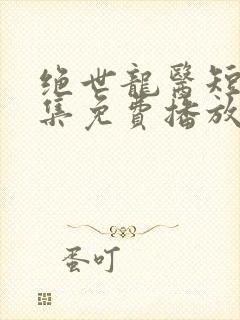 绝世龍醫短
集免費播放
蛋叮